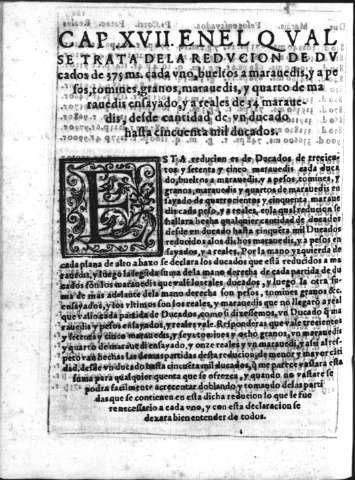 CAP. XVII. EN EL QVAL
SE TRATA DE LA REDVCION DE DV
cados de 375 ms. cada vno, bueltos a marauedis, y a pe
sos, tomines, granos, marauedis, y quarto de ma
rauedis ensayado, y a reales de 34 maraue-
dis, desde cantidad de vn ducado
hasta cincuenta mil ducados.
ESTA reducion es de Ducados de trecien
tos y setenta y cinco marauedis cada duca
do, bueltos a marauedis, y a pesos, tomines, y
granos, marauedis y quartos de marauedis en
sayado de quatrocientos y cincuenta maraue
dis cada peso, y a reales, cō la qual reducion se
hallara hecha qualquier cantidad de ducados
desde vn ducado hasta cinquēta mil Ducados
reducidos a los dichos marauedis, y a pesos en
sayados, y a reales. Por la mano yzquierda de
cada plana de alto abaxo se declara los ducados que està reducidos a ma
rauedis, y luego la segūda suma de la mano derecha de cada partida de du
cados son los marauedis que valē los tales ducados, y luego la otra su-
ma de mas adelante de la mano derecha son pesos, tomines granos &c.
ensayados, y los vltimos son los reales, y marauedis que no llegarō a real
que valio cada partida de Ducados, como si dixessemos, vn Ducado q̄ ma
rauedis y pesos ensayados, y reales vale. Responderas que vale trecientos
y setenta y cinco marauedis, y seys tomines y ocho granos, vn marauedi
y quarto de marauedi ensayado, y onze reales y vn marauedi, y assi al res-
peto van hechas las demas partidas desta reducion, de menor y mayor cāti
dad, desde vn ducado hasta cincuēta mil ducados, q̄ me parece vastara esta
suma para qualquier quenta que se ofrezca, y quando no vastare se
podra facilmente acrecentar doblando y tomando de las parti
das que se contienen en esta dicha reducion lo que le fue
re necessario a cada vno, y con esta declaracion se
dexara bien entender de todos.